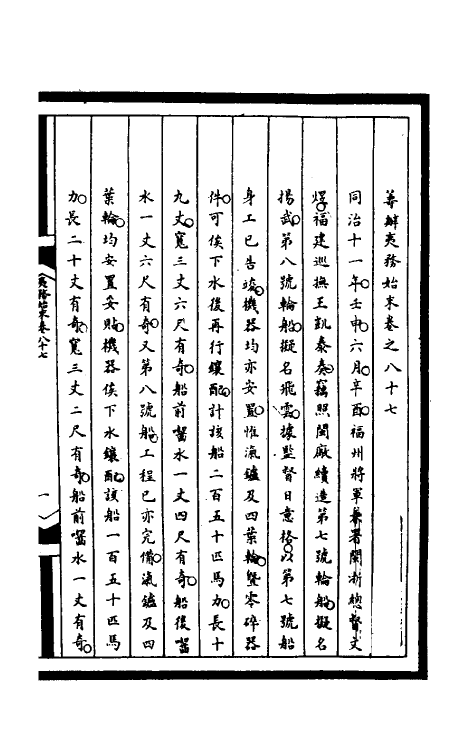 籌辦夷務始末卷之八十七
同治十一年壬申六月辛酉福州將軍兼署閩浙總督文
煜福建巡撫王凱泰奏竊照閩廠續造第七號輪船擬名
揚武第八號輪船擬名飛雲據監督日意格以第七號船
身工已告竣機器均亦安置惟滊鑪及四葉輪暨零碎器
件可俟下水後再行鑲配計該船二百五十匹馬力長十
九丈寬三丈六尺有奇船前㽞水一丈四尺有奇船後㽞
水一丈六尺有奇又第八號船工程已亦完備滊鑪及四
葉輪均安置妥貼機器俟下水鑲配該船一百五十匹馬
力長二十丈有奇寬三丈二尺有奇船前㽞水一丈有奇
夷務始末卷八十七
一